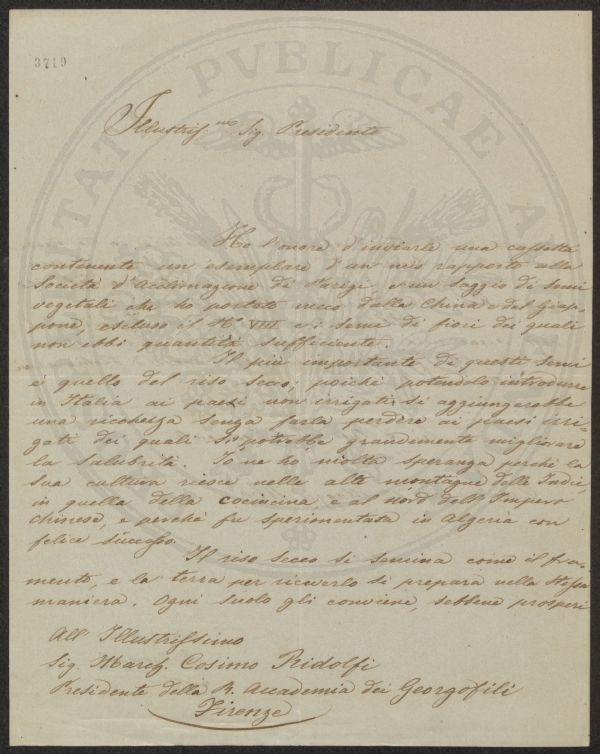 3719
PVBLICAE
Illustris.mo Sig. Presidente
Ho l'onore d'inviarle una cassetta
contenente un esemplare d'un mio rapporto alla
Società d'Acclimazione di Parigi e un saggio di semi
vegetali che ho portato meco dalla China e dal Giap-
pone, escluso il N.o VIII e i semi di fiori dei quali
non ebbi quantità sufficiente.
Il più importante di questi semi
è quello del riso secco, poichè potendolo introdurre
in Italia ai paesi non irrigati si aggiungerebbe
una ricchezza senza farla perdere ai paesi irri-
gati dei quali si potrebbe grandemente migliorare
la salubrità. Io ne ho molta speranza perchè la
sua cultura riesce nelle alte montagne delle Indie,
in quella della Cocincina e al nord dell'Impero
chinese, e perchè fu sperimentata in Algeria con
felice successo.
Il riso secco si semina come il fru-
mento, e la terra per riceverlo si prepara nella stessa
maniera. Ogni suolo gli conviene, sebbene prosperi
All'Illustrissimo
Sig. March. Cosimo Ridolfi
Presidente della R. Accademia dei Georgofili
Firenze